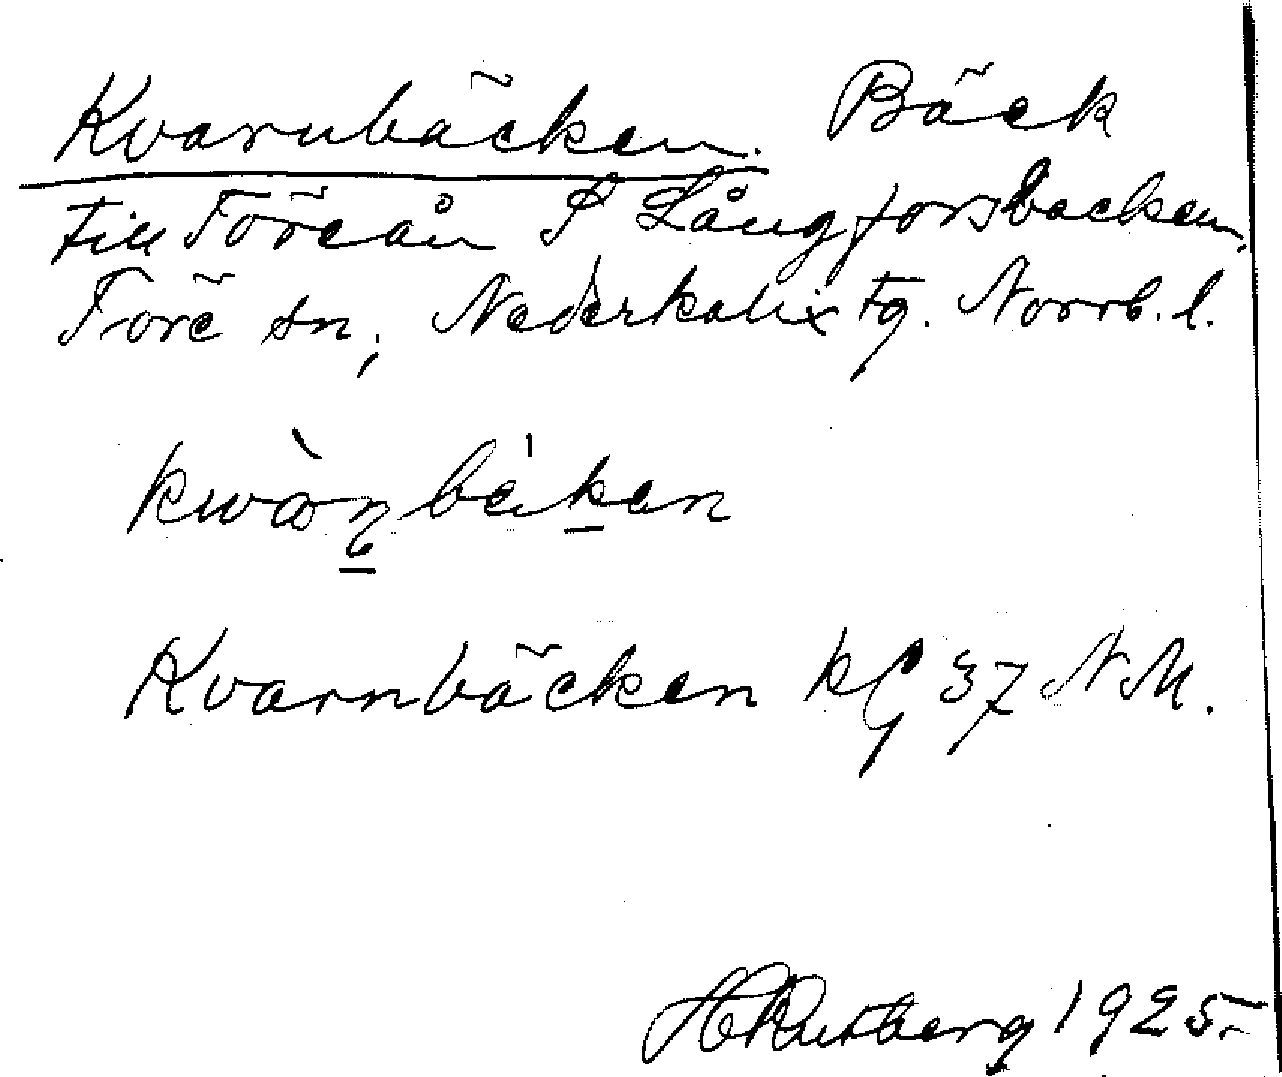 Kvarnbäcken. Bäck
till Töreån S Långforsbacken,
Töre sn, Nederkalix tg. Norrb. l.
kwàṇbèken
Kvarnbäcken kG 37 N M.
H Rutberg 1925